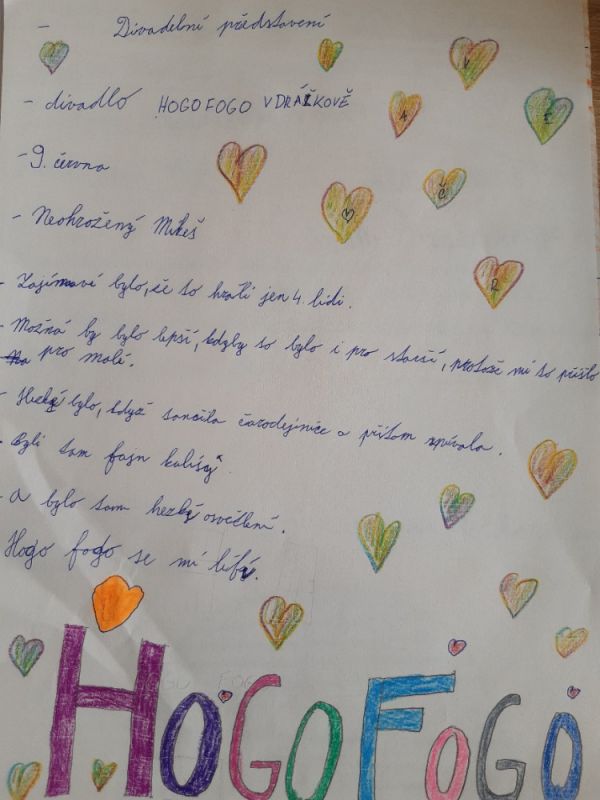 - Divadelní představení
- divadlo HOGO FOGO V DRÁŽKOVĚ
- 9. června
- Neohrožený Mikeš
- Zajímavé bylo, že to hráli jen 4. lidi.
- Možná by bylo lepší, kdyby to bylo i pro starší, protože mi to přišlo
pro malé.
- Hezký bylo, když tančila čarodejnice a přitom zpívala.
- Byli tam fajn kulisy
- A bylo tam hezký osvětlení.
Hogo fogo se mi
V
A
E
Č
R
HOGO FOGO
HOGO FOGO